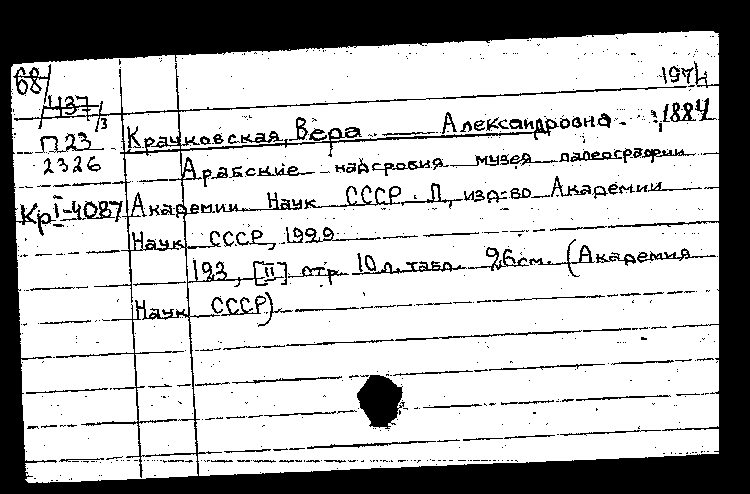 68/
437/3
1974
П23
2326
Крачковская, Вера Александровна. 1884
Арабские надгробия музея палеографии
КрI-4087
Академии Наук СССР. Л, изд-во Академии
Наук СССР, 1929
123, [II] стр. 10 л. табл. 26 см. (Академия
Наук СССР)